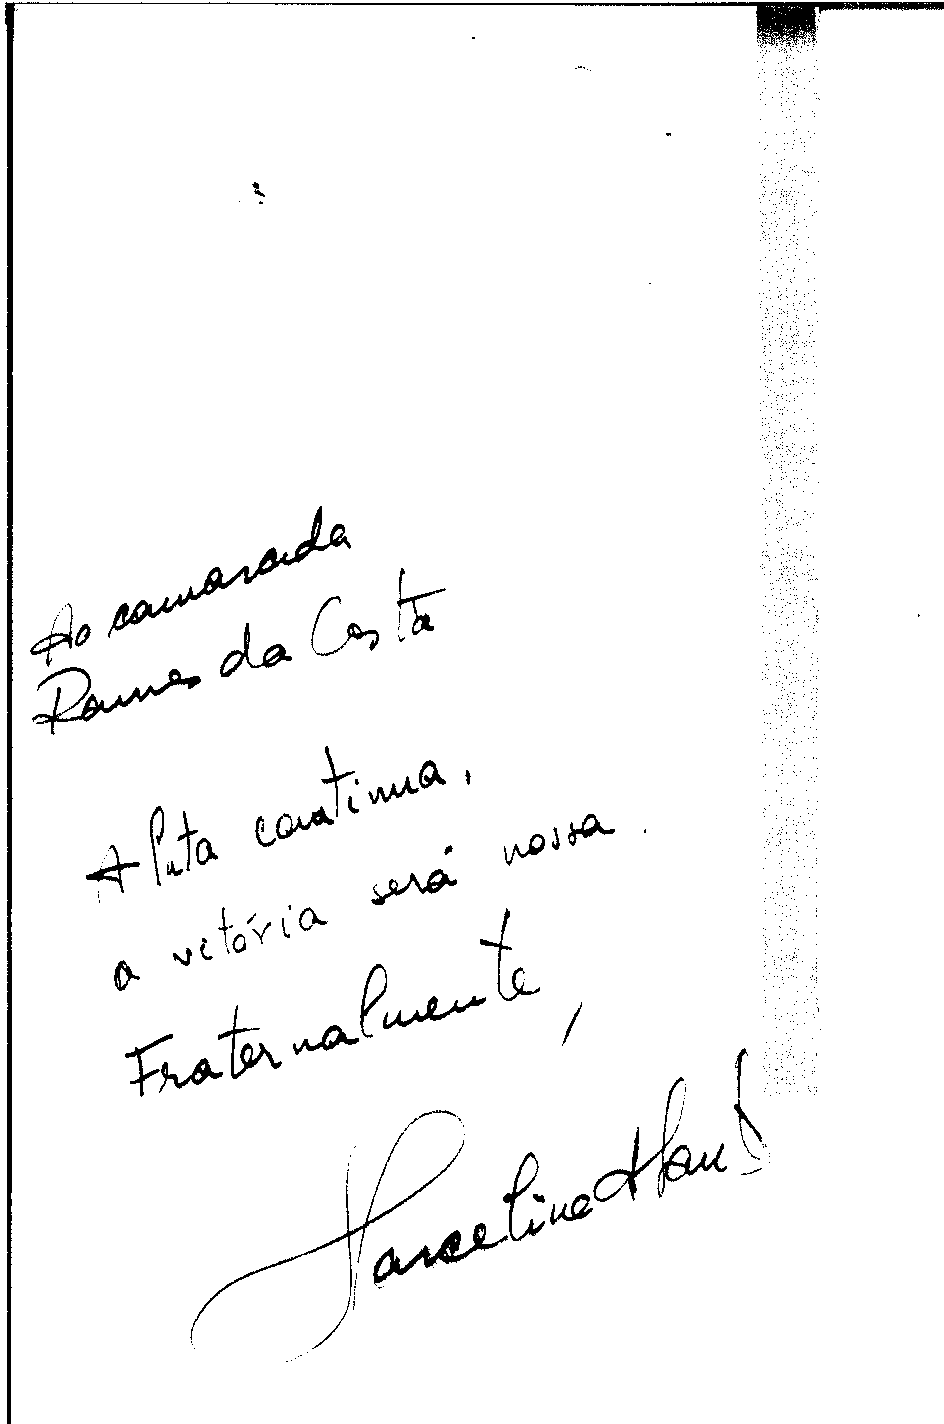 Ao camarada
Ramos da Costa
A luta continua,
a vitória será nossa.
Fraternalmente,
Marcelino